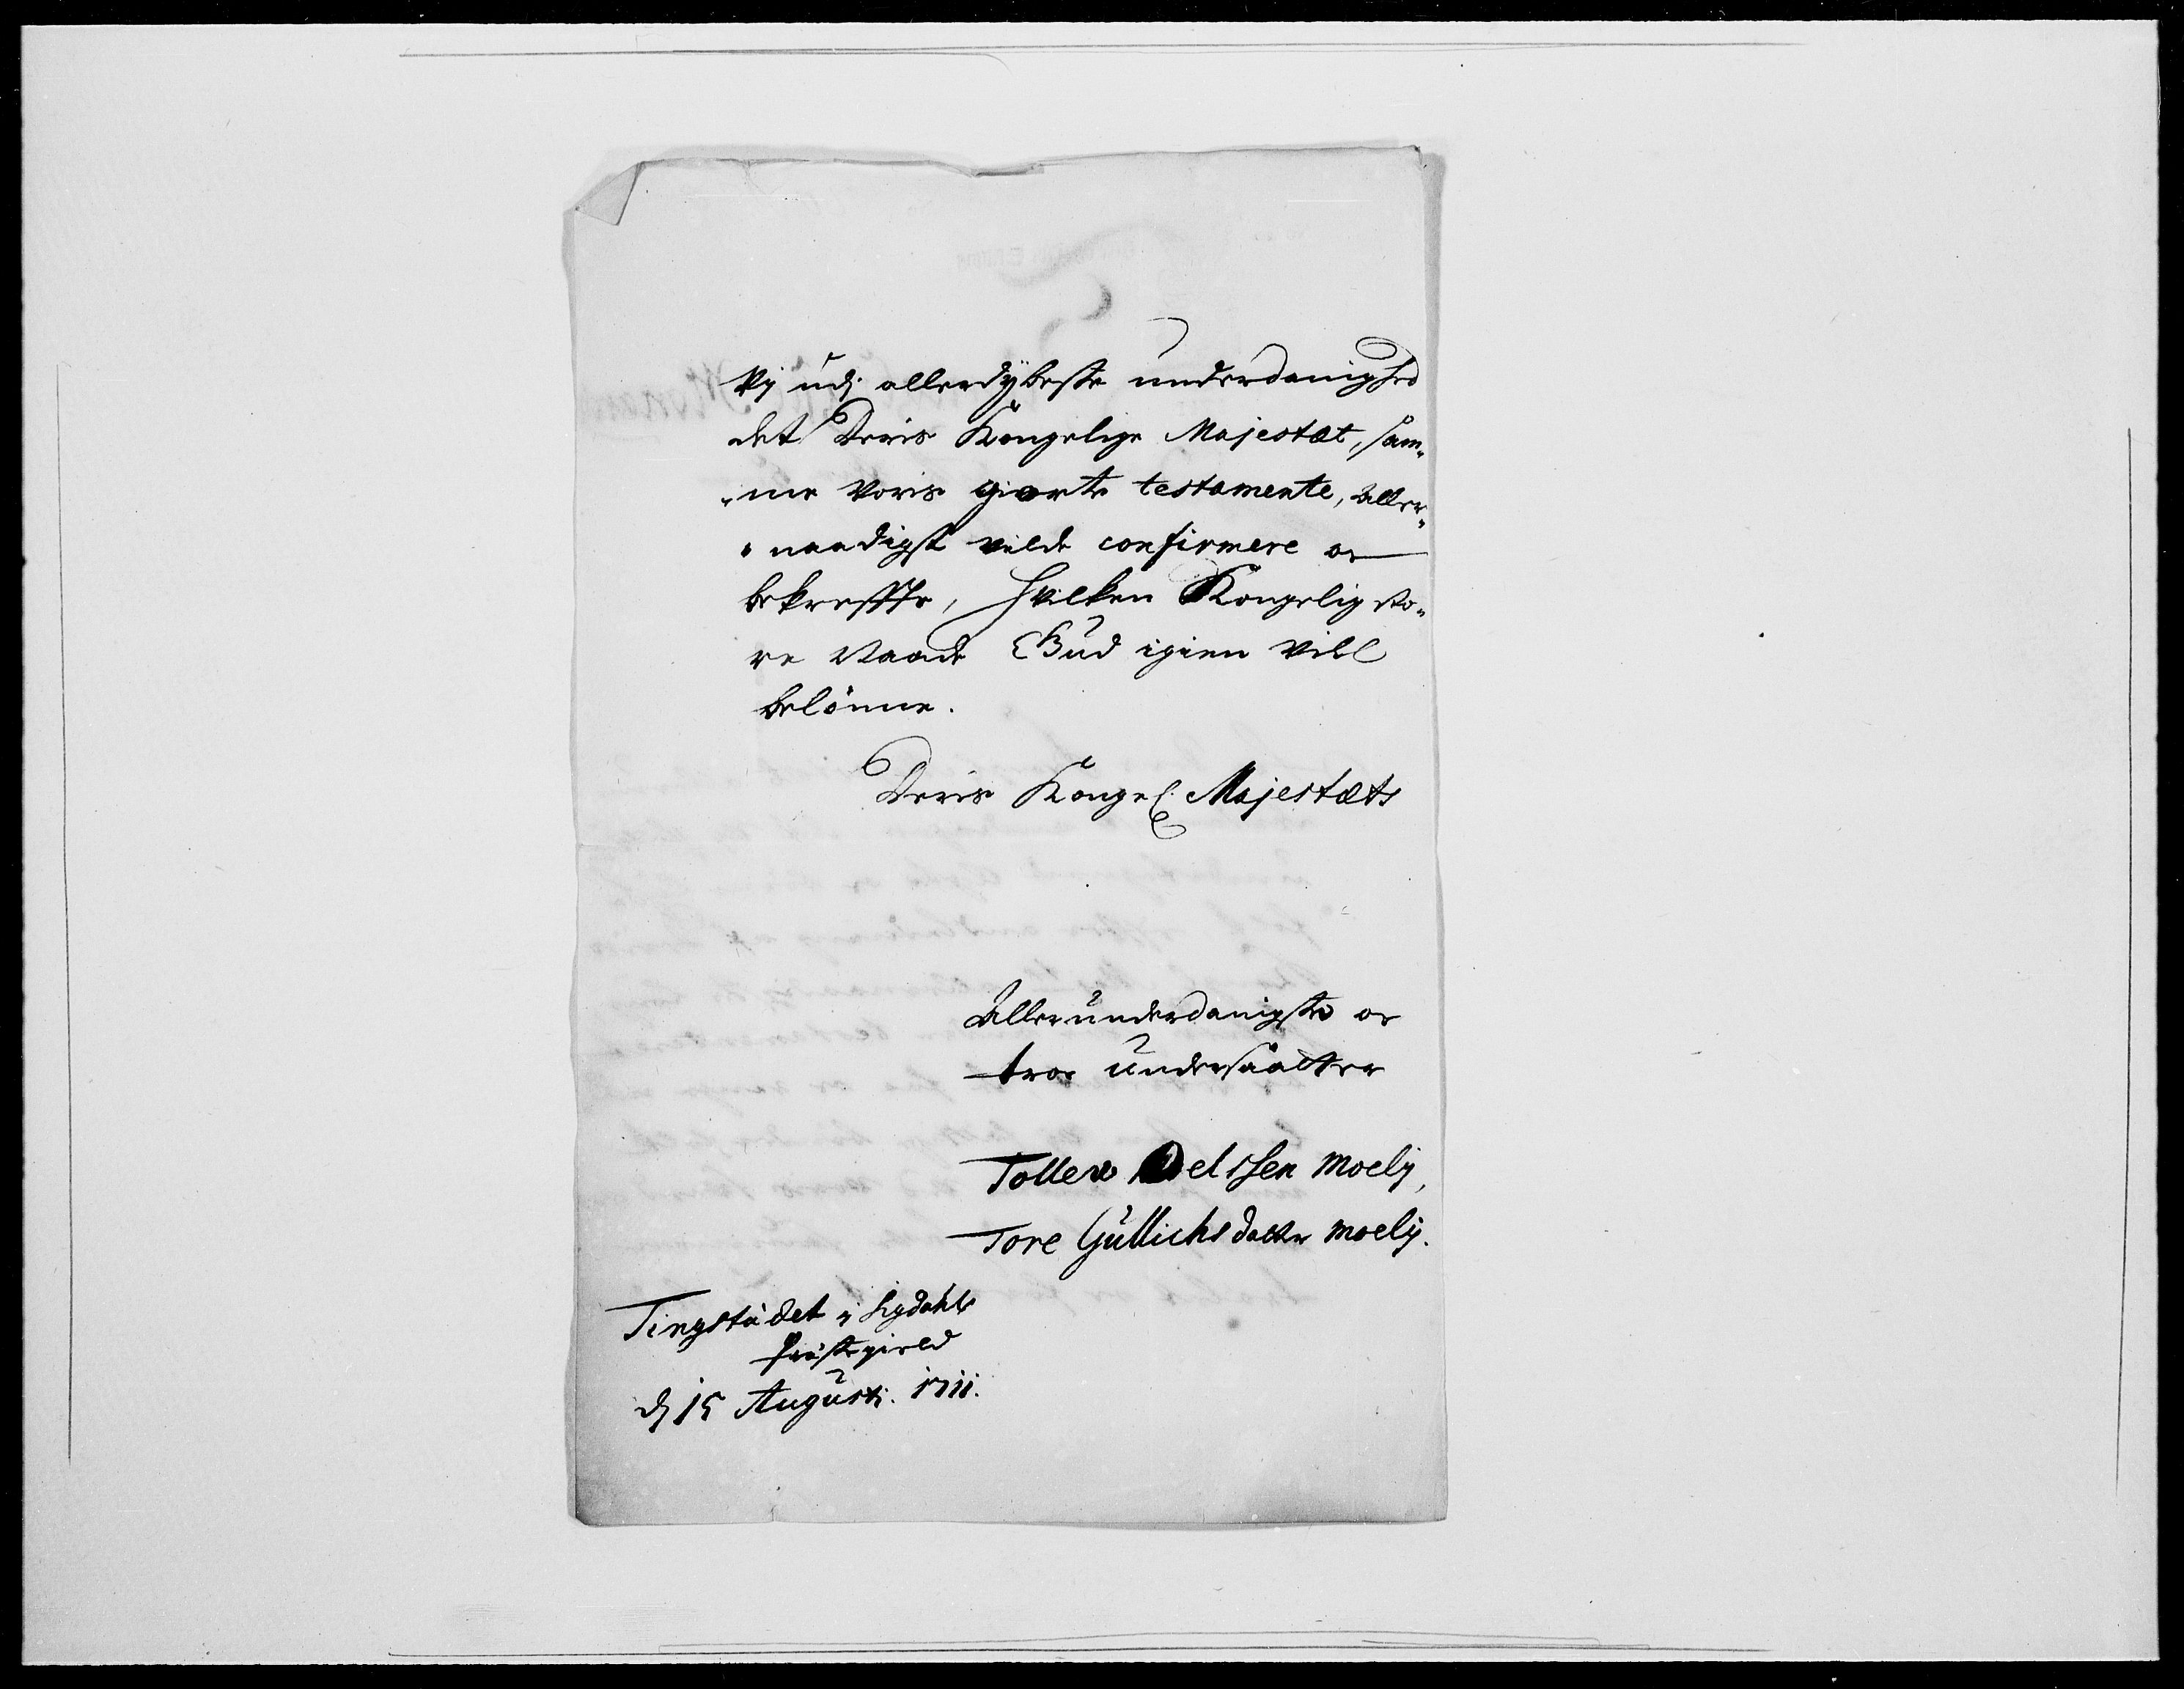 Vj udj allerdÿbeste underdanighed
det Deris Kongelige Majestæt, sam„
„me voris giorte testamente, Aller„
„naadigst vilde confirmere oc
bekreffte, Hvilken Kongelig sto„
re Naade Gud igien vill
belönne.
Deris Kongel: Majestæts
Allerunderdanigste oc
troe undersaatter
Tollew Oelssen Moelÿ,
Tore Gullichsdatter Moelÿ.
Tingstædet i Sigdahls
Præstegield
dj 15 Augustj. 1711.